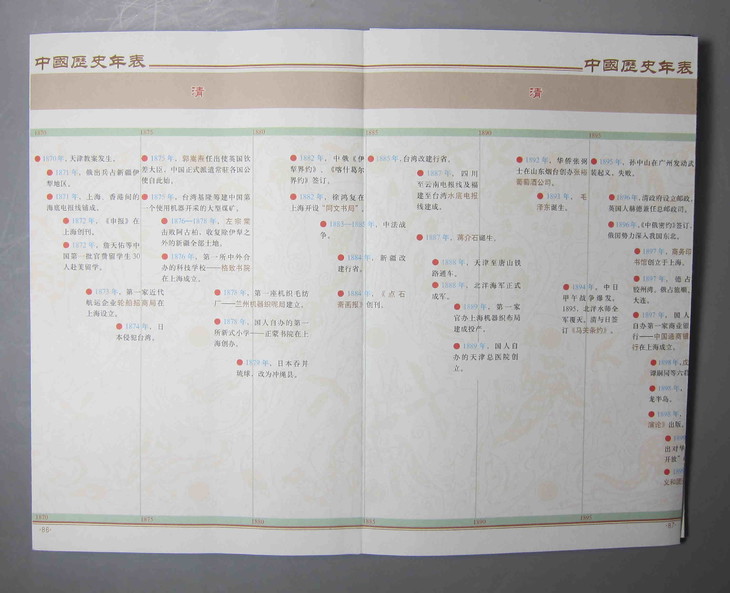 中國歷史年表
中國歷史年表
清
清
1870
1875
1880
1885
1890
1895
1870年，天津教案发生。
1871年，俄出兵占新疆伊
犁地区。
1871年，上海、香港间的
海底电报线铺成。
1872年，《申报》在
上海创刊。
1872年，詹天佑等中
国第一批官费留学生30
人赴美留学。
1873年，第一家近代
航运企业轮船招商局在
上海设立。
1874年，日
本侵犯台湾。
1875年，郭嵩焘任出使英国钦
差大臣，中国正式派遣常驻各国公
使自此始。
1875年，台湾基隆筹建中国第
一个使用机器开采的大型煤矿。
1876—1878年，左宗棠
击败阿古柏，收复除伊犁之
外的新疆全部土地。
1876年，第一所中外合
办的科技学校——格致书院
在上海成立。
1878年，第一座机织毛纺
厂——兰州机器织呢局建立。
1878年，国人自办的第一
所新式小学——正蒙书院在上
海创办。
1879年，日本吞并
琉球，改为冲绳县。
1882年，中俄《伊
犁界约》、《喀什噶尔
界约》签订。
1882年，徐鸿复在
上海开设“同文书局”。
1883—1885年，中法战
争。
1884年，新疆改
建行省。
1884年，《点石
斋画报》创刊。
1885年，台湾改建行省。
1887年，四川
至云南电报线及福
建至台湾水底电报
线建成。
1887年，蒋介石诞生。
1888年，天津至唐山铁
路通车。
1888年，北洋海军正式
成军。
1889年，第一家
官办上海机器织布局
建成投产。
1889年，国人自
办的天津总医院创
立。
1892年，华侨张弼
士在山东烟台创办张裕
葡萄酒公司。
1893年，毛
泽东诞生。
1894年，中日
甲午战争爆发。
1895，北洋水师全
军覆灭。清与日签
订《马关条约》。
1895年，孙中山在广州发动武
装起义，失败。
1896年，清政府设立邮政，
英国人赫德兼任总邮政司。
1896年，《中俄密约》签订，
俄国势力深入我国东北。
1897年，商务印
书馆创立于上海。
1897年，德占
胶州湾，俄占旅顺、
大连。
1897年，国人
自办第一家商业银
行——中国通商银
行在上海成立。
1898年，戊
谭嗣同等六君
1898年，
龙半岛。
1898年，
演论》出版。
出对华
开放”
义和团
1870
1875
1880
1885
1890
1895
·86·
·87·